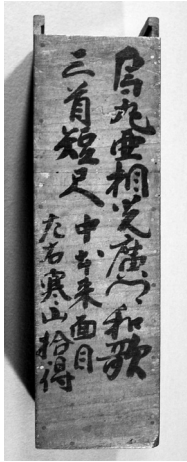 烏丸亜相光廣卿和歌
三首短尺
中本来面目
左右寒山拾得